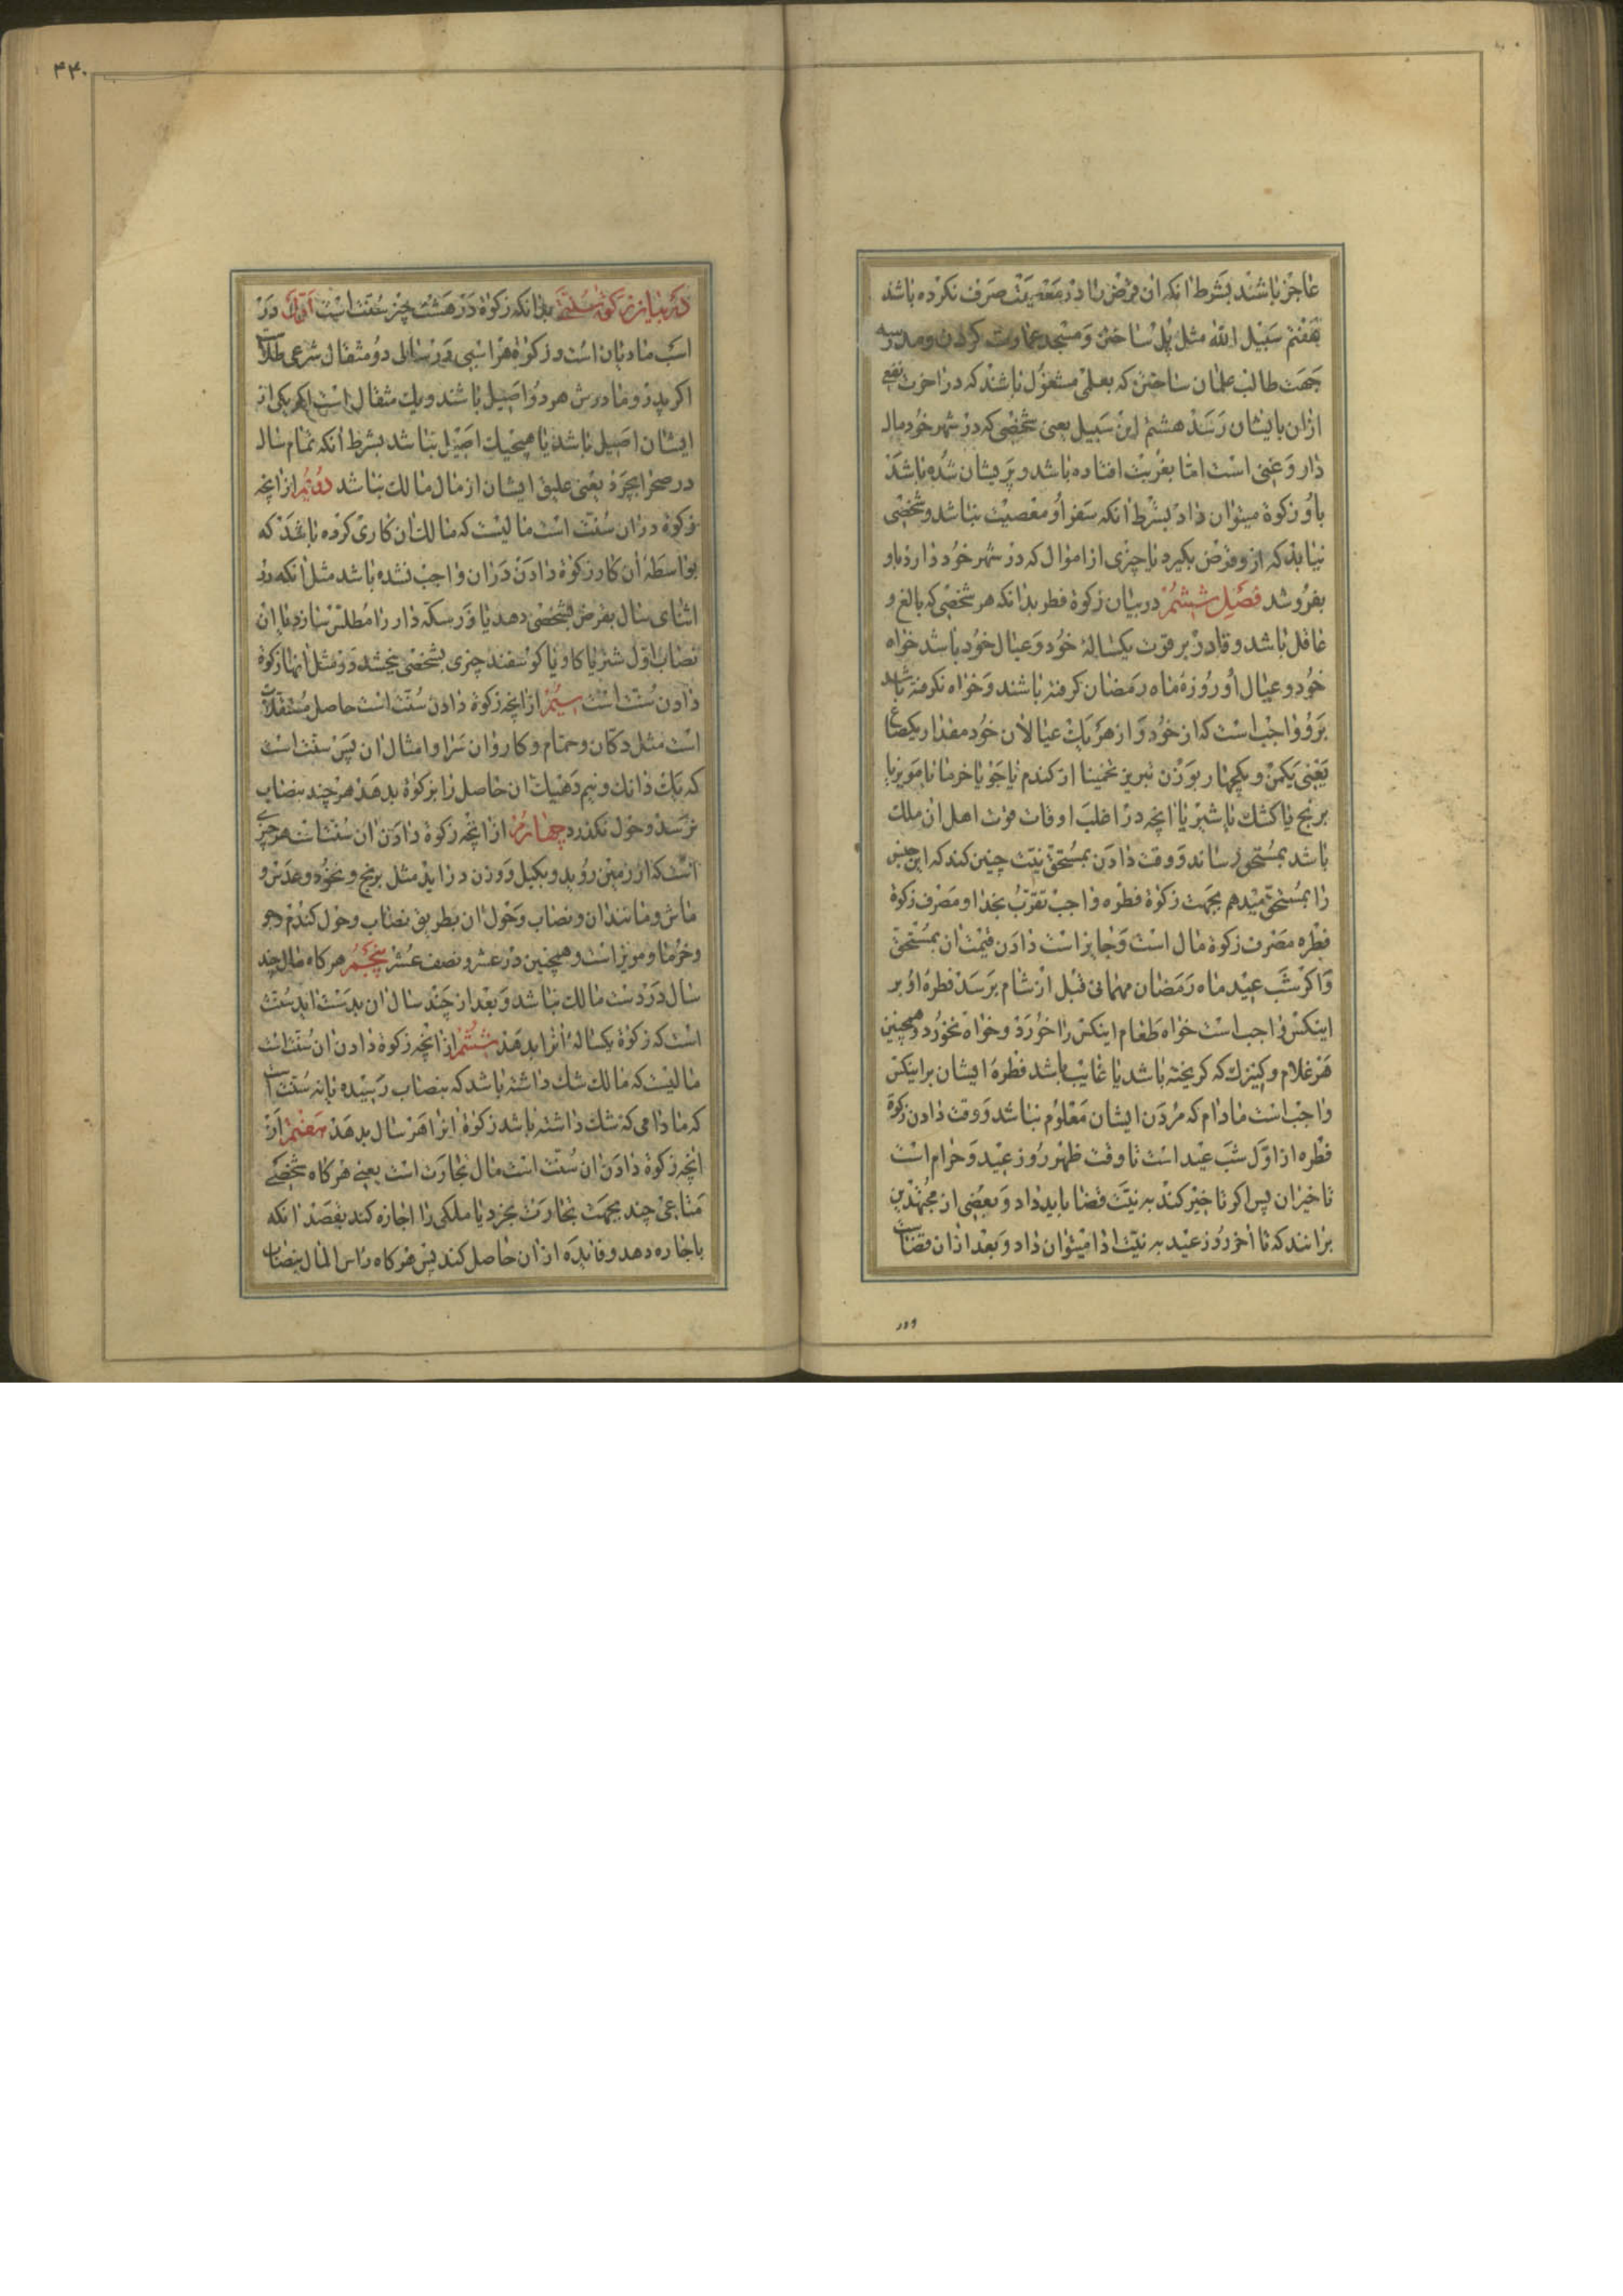 عاجز باشند بشرط انکه ان قرض را در معصیت صرف نکرده باشد
هفتم سبیل الله مثل پل ساختن و مسجد عمارت کردن و مدرسه
جهت طالب علمان ساختن که بعلمی مشغول باشند که در اخرت نفع
ازان بایشان رسد هشتم ابن سبیل یعنی شخصی که در شهر خود مال
دار و غنی است اما بغربت افتاده باشد و پریشان شده باشد
باو زکوة میتوان داد بشرط انکه سفر او معصیت نباشد و شخصی
نیابد که ازو قرض بکیرد یا چیزی از اموال که در شهر خود دارد باو
بفروشد فصل ششم در بیان زکوة فطر بدانکه هر شخصی که بالغ و
عاقل باشد و قادر بر قوت یکسالهٔ خود و عیال خود باشد خواه
خود و عیال او روزهٔ ماه رمضان کرفته باشند و خواه نکرفته باشند
برو واجب است که از خود و از هر یک عیالان خود مقدار یکصاع
یعنی یکمن و یکچهار بوزن تبریز تخمینا از کندم یا جو یا خرما یا مویز یا
برنج یا کشک یا شیر یا انچه در اغلب اوقات قوت اهل ان ملک
باشد بمستحق رساند و وقت دادن بمستحق نیت چنین کند که این جنس
را بمستحق میدهم بجهت زکوة فطره واجب تقرب بخدا و مصرف زکوة
فطره مصرف زکوة مال است و جایز است دادن قیمت ان بمستحق
و اکر شب عید ماه رمضان مهمانی قبل از شام برسد فطره او بر
اینکس واجب است خواه طعام اینکس را خورد و خواه نخورد و همچنین
هر غلام و کنیزک که کریخته باشد یا غایب باشد فطره ایشان بر اینکس
واجب است مادام که مردن ایشان معلوم نباشد و وقت دادن زکوة
فطره از اول شب عید است تا وقت ظهر روز عید و حرام است
تاخیر ان پس اکر تاخیر کند به نیت قضا باید داد و بعضی از مجتهدین
برانند که تا اخر روز عید به نیت ادا میتوان داد و بعد ازان قضاست
۴۴۰
در بیان زکوة سنتی بدانکه زکوة در هشت چیز سنت است اول در
اسب مادیان است و زکوة هر اسبی در سال دو مثقال شرعی طلاست
اکر پدر و مادرش هر دو اصیل باشند و یک مثقال است اکر یکی از
ایشان اصیل باشد یا هیچیک اصیل نباشد بشرط انکه تمام سال
در صحرا بچرد یعنی علیق ایشان از مال مالک نباشد دویم از انچه
زکوة دران سنت است مالیست که مالک ان کاری کرده باشد که
بواسطه ان کار زکوة دادن دران واجب نشده باشد مثل انکه در
اثنای سال بقرض بشخصی دهد یا زر سکه دار را مطلس سازد یا از
نصاب اول شتر یا کاو یا کوسفند چیزی بشخصی بخشد در مثل انها زکوة
دادن سنت است سیم از انچه زکوة دادن سنت است حاصل مستغلات
است مثل دکان و حمام و کاروان سرا و امثال ان پس سنت است
که یک دانک و نیم ده یک ان حاصل را بزکوة بدهد هر چند بنصاب
نرسد و حول نکذرد چهارم از انچه زکوة دادن ان سنت است هر چیزی
است که از زمین روید و بکیل و وزن در اید مثل برنج و نخود و عدس و
ماش و مانند ان و نصاب و حول ان بطریق نصاب و حول کندم و جو
و خرما و مویز است و همچنین در عشر و نصف عشر پنجم هر کاه مال چند
سال در دست مالک نباشد و بعد از چند سال ان بدست اید سنت
است که زکوة یکسالهٔ انرا بدهد ششم از انچه زکوة دادن ان سنت است
مالیست که مالک شک داشته باشد که بنصاب رسیده یا نه سنت است
که مادامی که شک داشته باشد زکوة انرا هر سال بدهد هفتم از
انچه زکوة دادن ان سنت است مال تجارت است یعنی هر کاه شخصی
متاعی چند بجهت تجارت بخرد یا ملکی را اجاره کند بقصد انکه
باجاره دهد و فایده ازان حاصل کند پس هر کاه راس المال بنصاب